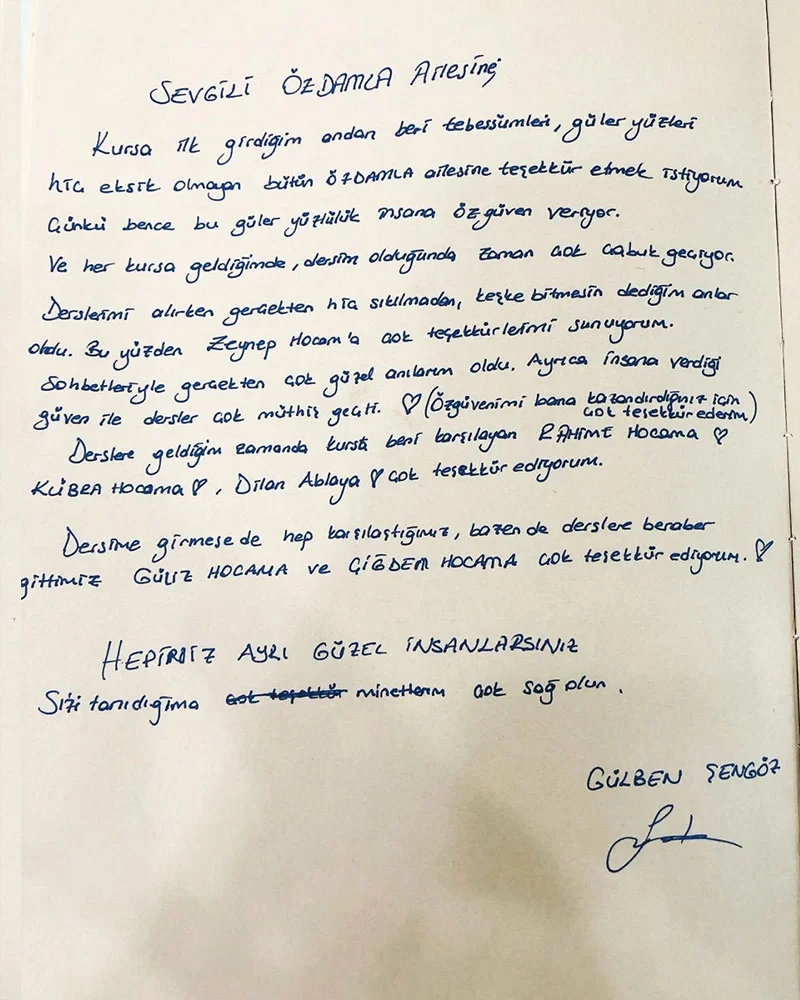 SEVGİLİ ÖZDAMLA Ailesine
Kursa ilk girdiğim andan beri tebessümleri, güler yüzleri
hiç eksik olmayan bütün ÖZDAMLA ailesine teşekkür etmek istiyorum
Çünkü bence bu güler yüzlülük insana özgüven veriyor.
Ve her kursa geldiğimde, dersim olduğunda zaman çok çabuk geçiyor.
Derslerimi alırken gerçekten hiç sıkılmadan, keşke bitmesin dediğim anlar
oldu. Bu yüzden Zeynep Hocam'a çok teşekkürlerimi sunuyorum.
Sohbetleriyle gerçekten çok güzel anılarım oldu. Ayrıca insana verdiği
güven ile dersler çok müthiş geçti. ♡ (Özgüvenimi bana kazandırdığınız için
çok teşekkür ederim)
Derslere geldiğim zamanda kursta beni karşılayan RAHİME Hocama ♡
KÜBRA Hocama ♡, Dilan Ablaya ♡ çok teşekkür ediyorum.
Dersime girmese de hep karşılaştığımız, bazen de derslere beraber
gittimiz GÜLİZ HOCAMA ve ÇİĞDEM HOCAMA çok teşekkür ediyorum. ♡
HEPİNİZ AYRI GÜZEL İNSANLARSINIZ
Sizi tanıdığıma çok teşekkür minettarım çok sağ olun.
GÜLBEN ŞENGÖZ